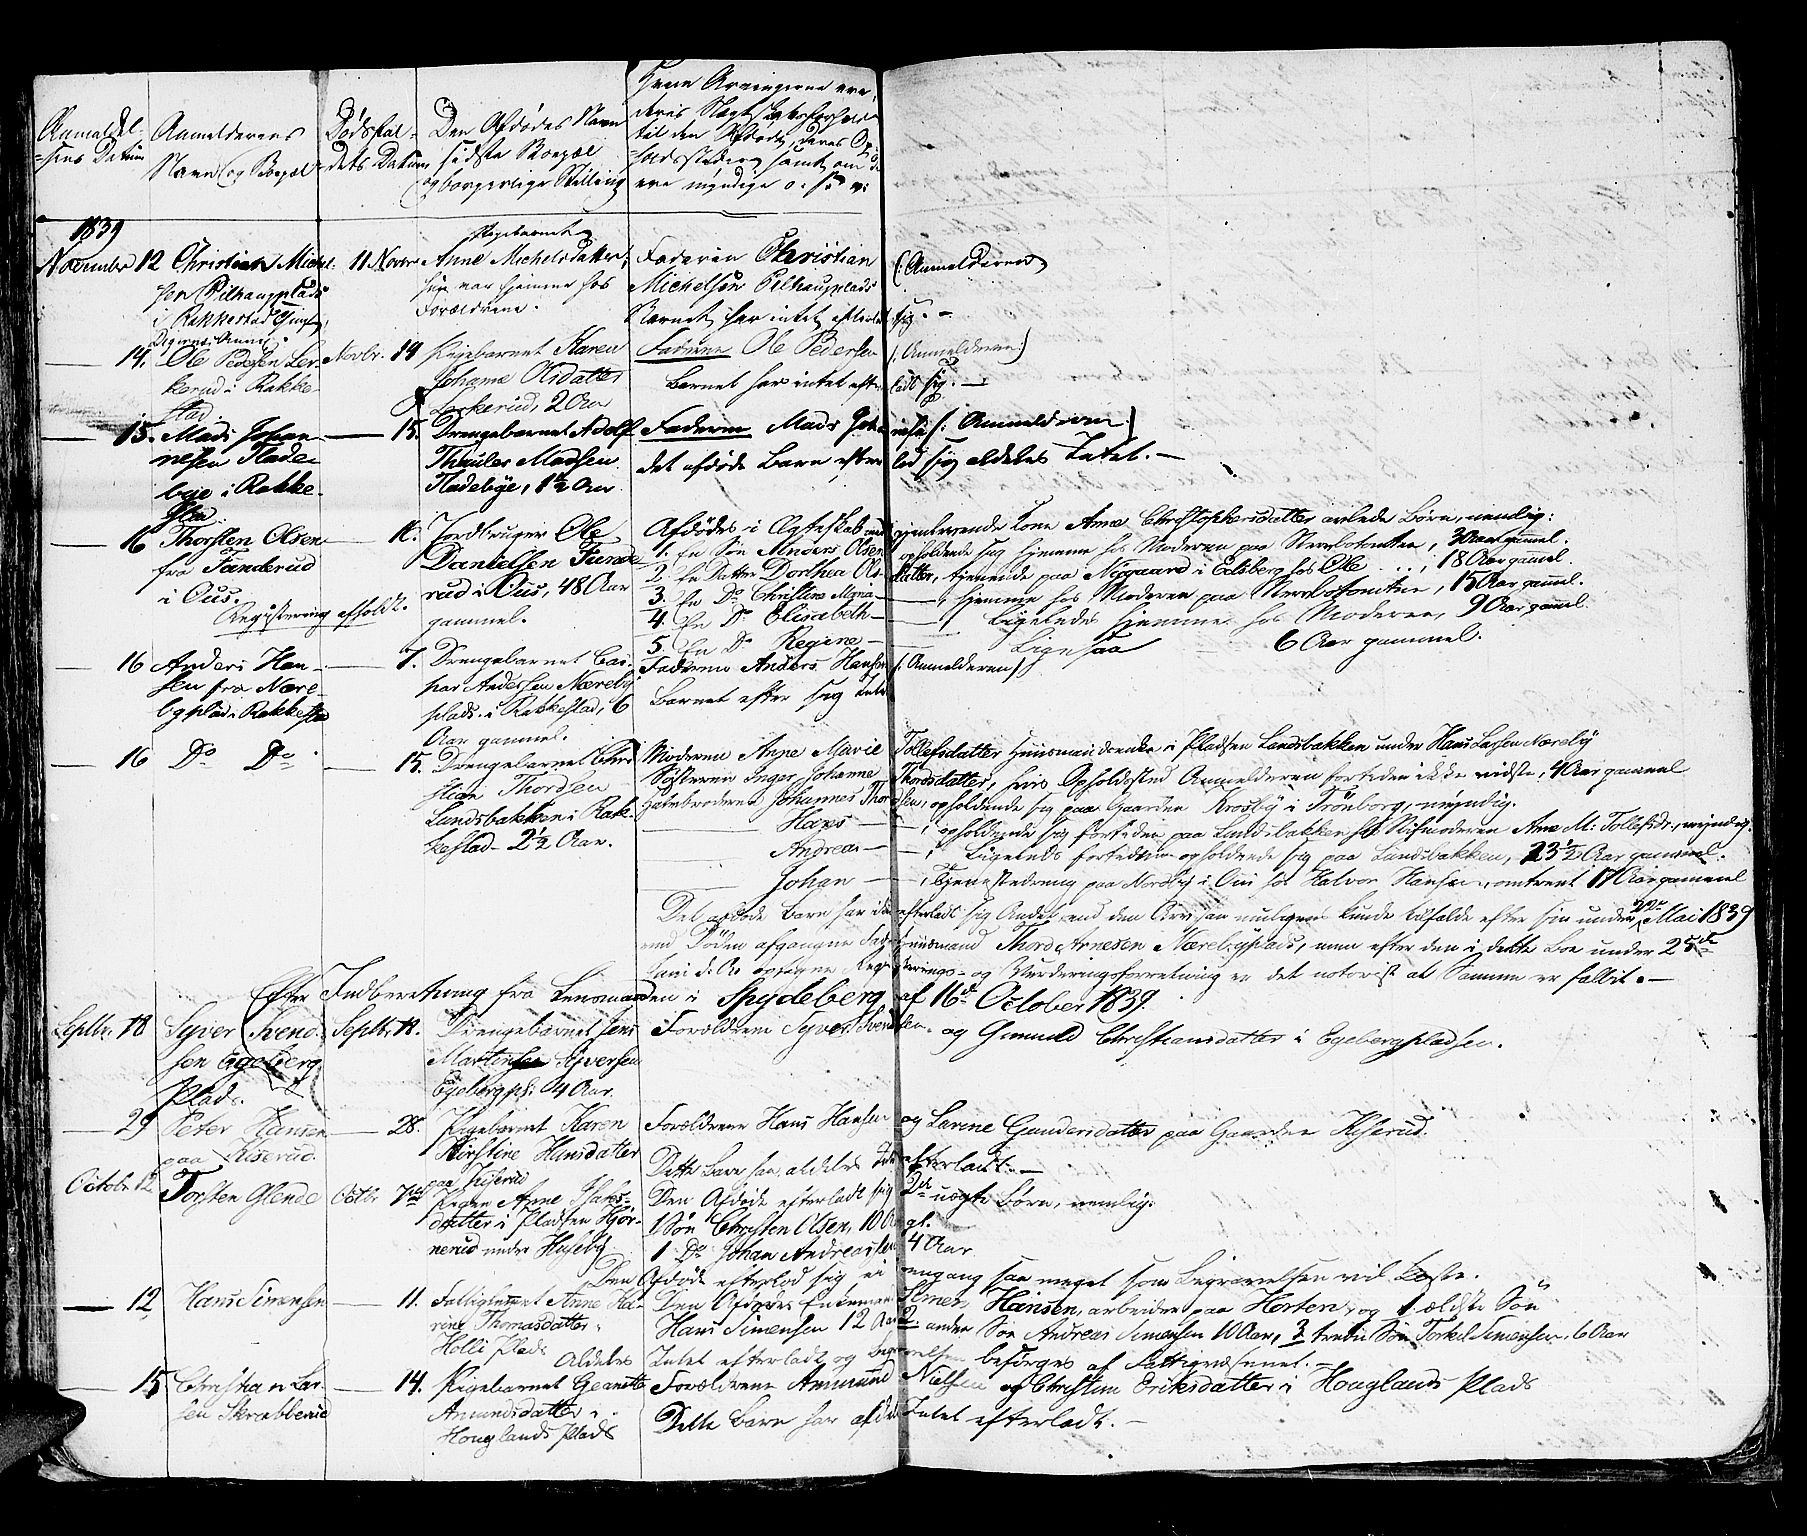 Anmeldel-
sens Datum
Anmelderens
Navn og Bopæl
Dødsfal-
dets Datum
Den Afdødes Navn
sidste Bopæl
og borgerlige Stilling
Hvem Arvingerne ere,
deres Slægtskabsforhold
til den Afdøde, deres Op-
holdssteder samt om de
ere myndige o. s. v:
1839
November 12
Christian Michel-
sen Pilhaugplads
i Rakkestad
11 Novbr
Pigebarnet
Anne Michelsdatter,
hun var hjemme hos
Forældrene.
Faderen Christian (: Anmelderen
Michelsen Pilhaugplads
Barnet har intet efterladt sig. -
14.
Ole Pedersen Ler-
kerud i Rakke-
stad
Novbr. 14
Pigebarnet Karen
Johanne Olsdatter
Lerkerud, 2 Aar
Faderen Ole Pedersen (: Anmelderen :)
Barnet har intet efterladt sig. -
15.
Mads Johan-
nesen Flade-
bye i Rakke-
stad
15.
Drengebarnet Adolf
Madsen
Fladebye, 1½ Aar
Faderen Mads Johannesen (: Anmelderen :)
det afdøde Barn efterlod sig aldeles Intet. -
16
Thorsten Olsen
fra Tanderud
i Ous.
Registrering afholdt.
Jordbruger Ole
Danielsen Tande-
rud i Ous, 48 Aar
gammel.
Afdødes i Ægteskab med gjenlevende Kone Anne Christophersdatter avlede Børn, nemlig:
1. En Søn Anders Olsen opholdende sig hjemme hos Moderen paa
2. En Datter Dorthea Olsdatter, tjenende paa Nygaard i Edsberg hos Ole . . , 18 Aar gammel.
3. En Do Christine Maria - , hjemme hos Moderen paa , 15 Aar gammel.
4. En Do Elisabeth - Ligeledes hjemme hos Moderen, 9 Aar gammel.
5. En Do Regine - Ligesaa 6 Aar gammel.
16
Anders Han-
sen fra Næreby
plads i Rakkestad
7.
Drengebarnet Cas-
par Andersen Næreby
plads i Rakkestad, 6
Aar gammel.
Faderen Anders Hansen (: Anmelderen :)
Barnet efter sig Intet
16 Do Do
15.
Drengebarnet Chri-
stian Thordsen
Lundsbakken i Rak-
kestad 2½ Aar.
Moderen Anne Marie Tollefsdatter Huusmandsenke i Pladsen Lundsbakken under Hans Larsen Næreby
Søsteren Inger Johanne Thordsdatter, hvis Opholdssted Anmelderen fortiden ikke vidste, 4 Aar gammel
Halvbroderen Johannes Thordsen, opholdende sig paa Gaarden Krosby i Trönborg, myndig.
Hans - , opholdende sig fortiden paa Lundsbakken hos Stifmoderen Anne M. Tollefsdr, myndig.
Andreas - , Ligeleds fortiden opholdende sig paa Lundsbakken, 23½ Aar gammel.
Johan - , Tjenestedreng paa Nordby i Ous hos Halvor Hansen, omtrent 17 Aar gammel
Det afdøde Barn har ikke efterladt sig Andet end den Arv han muligens kunde tilfalde efter sin under 22de Mai 1839
ved Døden afgangne Fader Huusmand Thord Arnesen Nærebyplads, men efter den i dette Boe under 25de
Juni d. A. optagne Registrerings- og Vurderingsforretning er det notorisk at Samme er fallit. -
Efter Indberetning fra Lensmanden i Spydeberg af 16de October 1839.
Septbr. 18
Syver Svend-
sen Egeberg
Plads.
Septbr. 11.
Drengebarnet Jens
Martinsen Syversen
Egebergpl: 4 Aar.
Forældrene Syver Svendsen - og Gunnild Christiansdatter i Egebergpladsen.
29
Peter Hansen
paa Kiserud.
28.
Pigebarnet Karen
Kirstine Hansdatter
paa Kiserud
Forældrene Hans Hansen og Larine Gundersdatter paa Gaarden Kiserud.
Dette Barn har aldeles Intet efterladt. -
Octobr 12
Torsten Glende
Octbr 7de
Pigen Anne Hans-
datter i Pladsen Hjør-
nerud under Huseby
Den Afdøde efterladt sig 2de uægte Børn, nemlig.
1 Søn Christen Olsen, 10 Aar gl.
1 Do Johan Andreassen 4 Aar
Den Afdøde efterlod sig ei engang saa meget som Begravelsen vil koste.
12
Hans Simensen
11.
Fattiglemmet Anne Ka-
rine Thomasdatter
Holli Plads
Den Afdødes Enkemand Simen Hansen, arbeider paa Horten, og 1. ældste Søn
Hans Simensen 12 Aar 2. anden Søn Andreas Simensen 10 Aar, 3 tredie Søn Torkel Simensen 6 Aar
Aldeles Intet efterladt og Begravelsen besørges af Fattigvæsenet. -
15
Christian Lar-
sen Skrabberud
14.
Pigebarnet Jeanette
Amundsdatter
Houglands Plads
Forældrene Ammund Nielsen og Christine Eriksdatter i Houglands Plads
Dette Barn har aldeles Intet efterladt. -